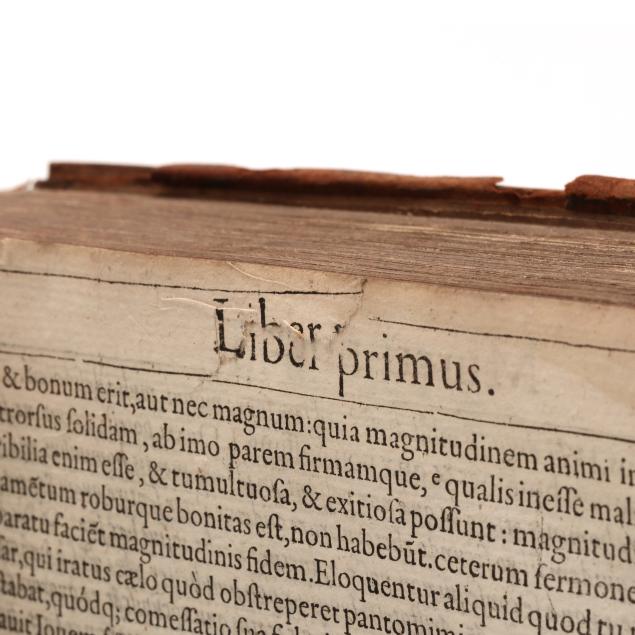 Liber primus.
& bonum erit, aut nec magnum: quia magnitudinem animi in
trorſus ſolidam, ab imo parem firmamque, e qualis ineſſe mal
ibilia enim eſſe, & tumultuoſa, & exitioſa poſſunt: magnitud
amẽtum roburque bonitas eſt, non habebũt. ceterum ſermone
paratu faciẽt magnitudinis fidem. Eloquentur aliquid quod tu
ſar, qui iratus cælo quòd obſtreperet pantomimi
ſtabat, quódq; comeſſatio ſua
auit Iouem